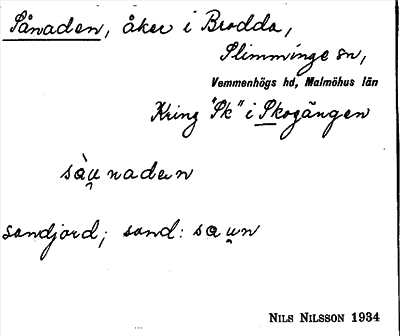 Sånaden, åker i Brodda,
Slimminge sn,
Vemmenhögs hd, Malmöhus län
Kring "Sk" i Skogången
sàu̯naden
sandjord; sand: sau̯n
NILS NILSSON 1934